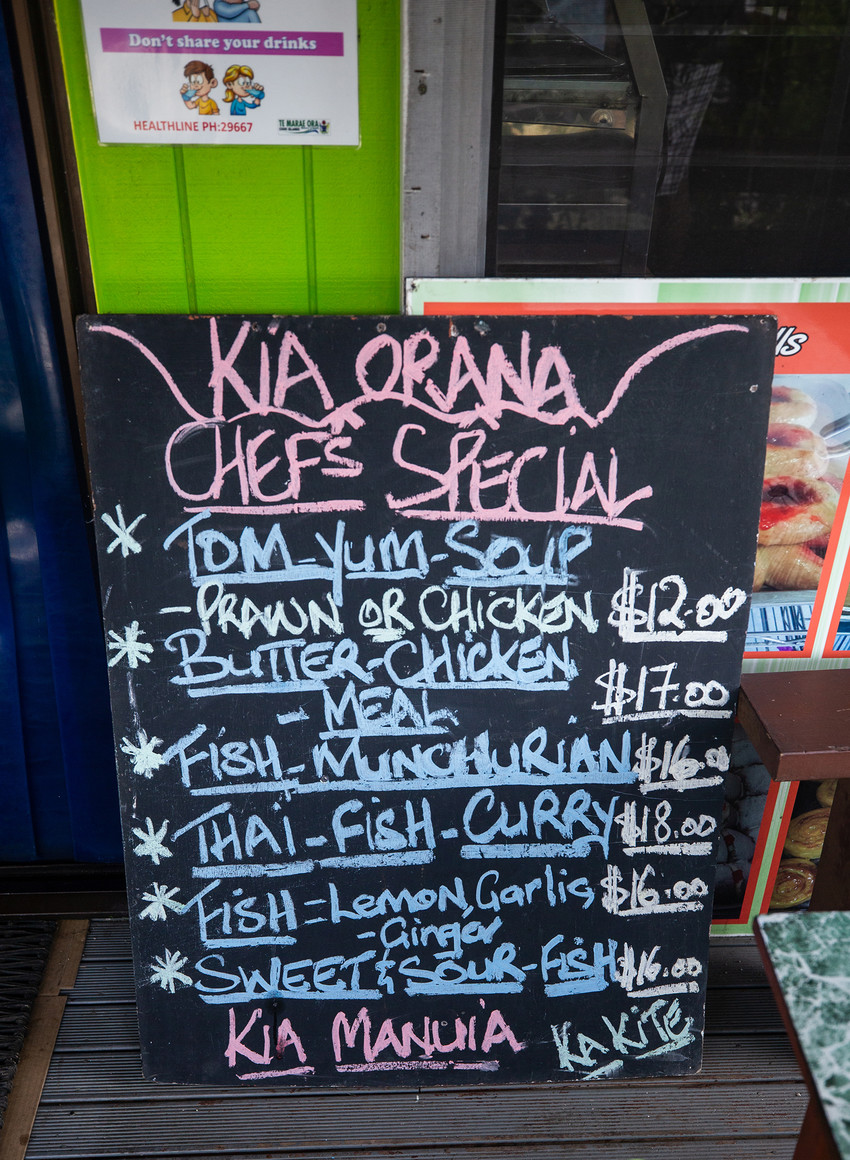 Don't share your drinks
HEALTHLINE PH:29667
TE MARAE ORA
COOK ISLANDS
lls
KiA ORANA
CHEFS SPECiAL
* TOM-YUM-SOUP
- PRAWN OR CHiCKEN $12.00
* BUTTER-CHiCKEN
- MEAL $17.00
* FiSH-MUNCHURiAN $16.00
* THAi-FiSH-CURRY $18.00
* FiSH=Lemon, Garlic, $16.00
-Ginger
* SWEET & SOUR-FiSH $16.00
KiA MANUiA KA KiTE